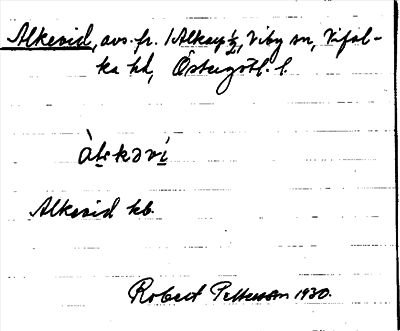 Alkevid, avs. fr. 1 Alkarp ½, Viby sn, Vifol-
ka hd, Östergötl. l.
àl̥kəví
Alkevid kb.
Robert Pettersson 1930.